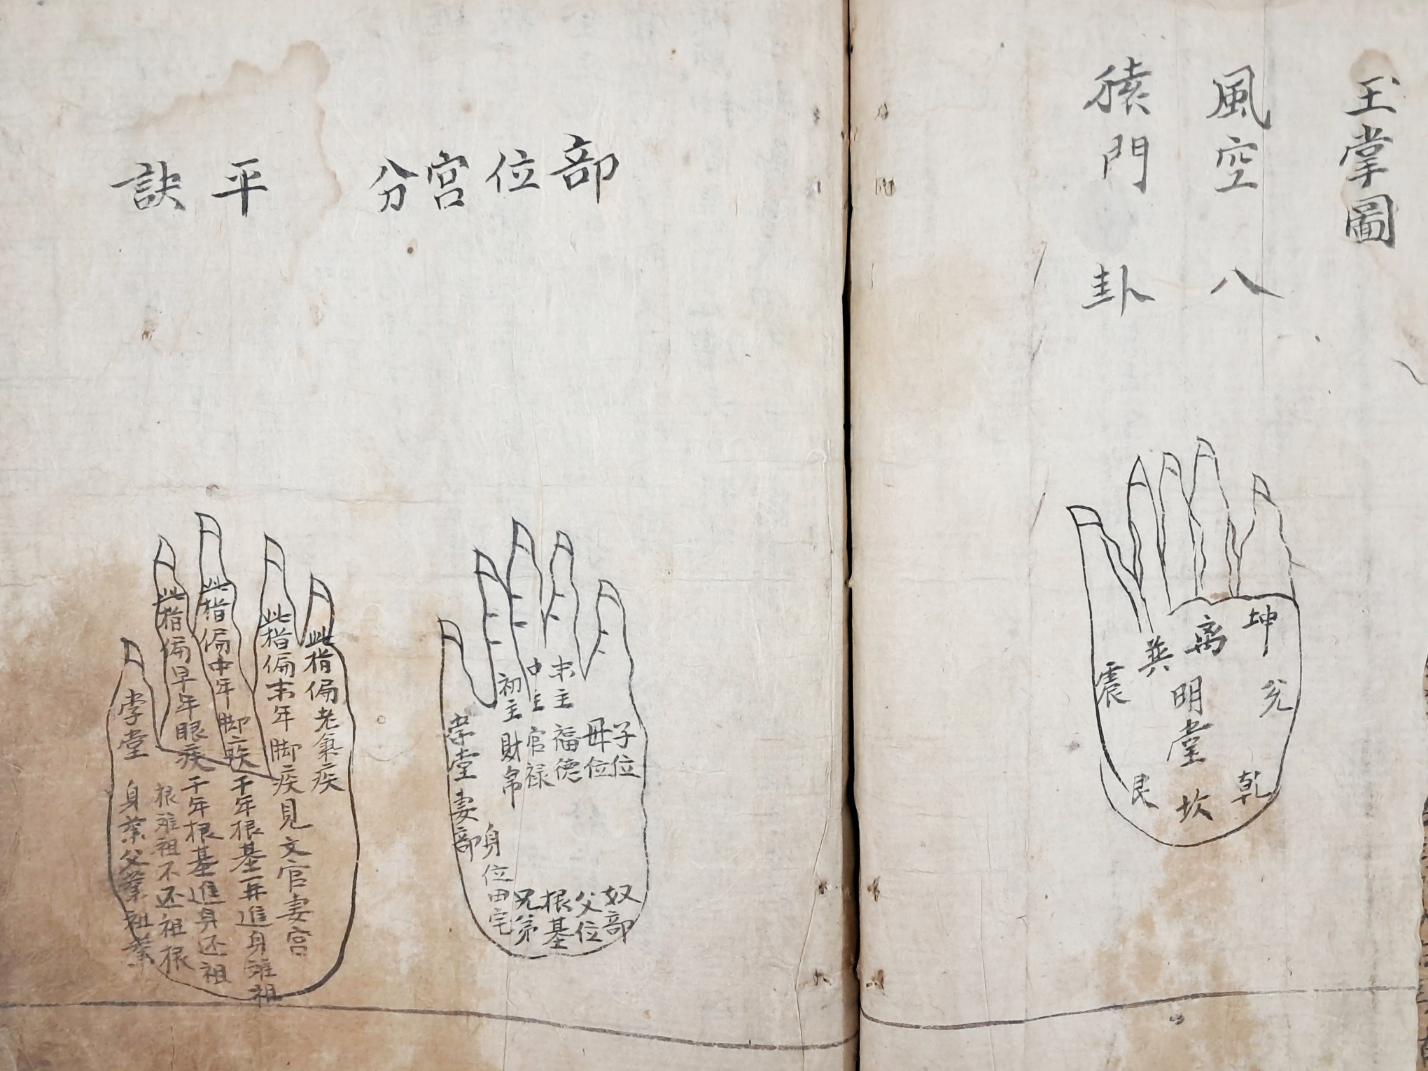 玉掌圖
風空八
猿門卦
坤
离
巽
震
兌
明堂
乾
坎
艮
部位宮分
平訣
子位
母位
末主福德
中主官禄
初主財帛
学堂妻部
奴部
父位
根基
兄弟
身位田宅
此指偏老氣疾
此指偏末年脚疾見文官妻宮
此指偏中年脚疾千年根基并進身離祖
此指偏早年眼疾千年根基進身还祖
根離祖不还祖根
学堂身業父業祖業